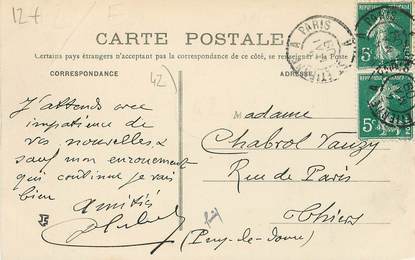 12+
CARTE POSTALE
Certains pays étrangers n'acceptant pas la correspondance de ce côté, se renseigner à la Poste
CORRESPONDANCE
42
ADRESSE
J'attends avec
impatience de
vos nouvelles &
sauf mon enrouement
qui continue je vais
bien
Amitiés
Madame
Chabrol Vauzy
Rue de Paris
Thiers
(Puy-de-Dome)
PARIS
5c
5c